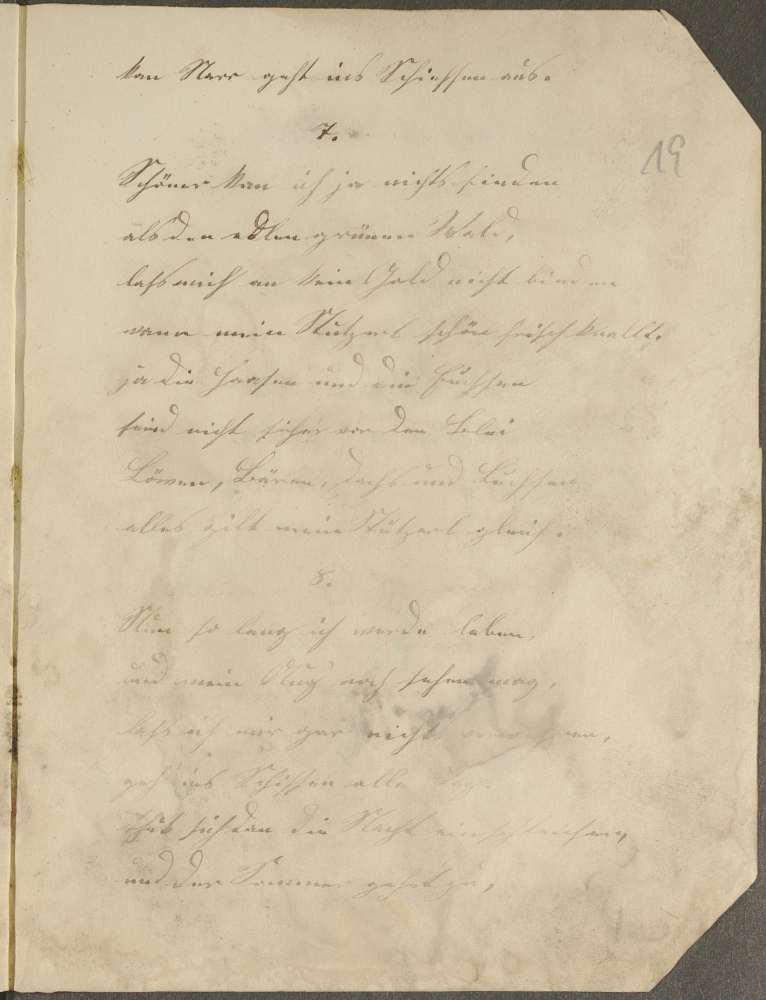 kan Narr geht ins Schiessen aus.
7.
19
Schöners kan ich ja nichts finden
als den edlen grünnen Wald,
lass mich an kein Gold nicht binden
wann mein Stutzerl schön frisch knallt.
ja die Haasen und die Füchsen
seind nicht sicher vor den Blei
Löwen, Bären, Dachs und Luchsen
alles gilt mein Stutzerl gleich.
8.
Nun so lang ich werde leben,
und mein Aug noch sehen mag,
lass ich mir gar nichts
geh ins Schissen alle Tag.
thut sich dan die Nacht einschleichen,
und der Sommer gehet zu,